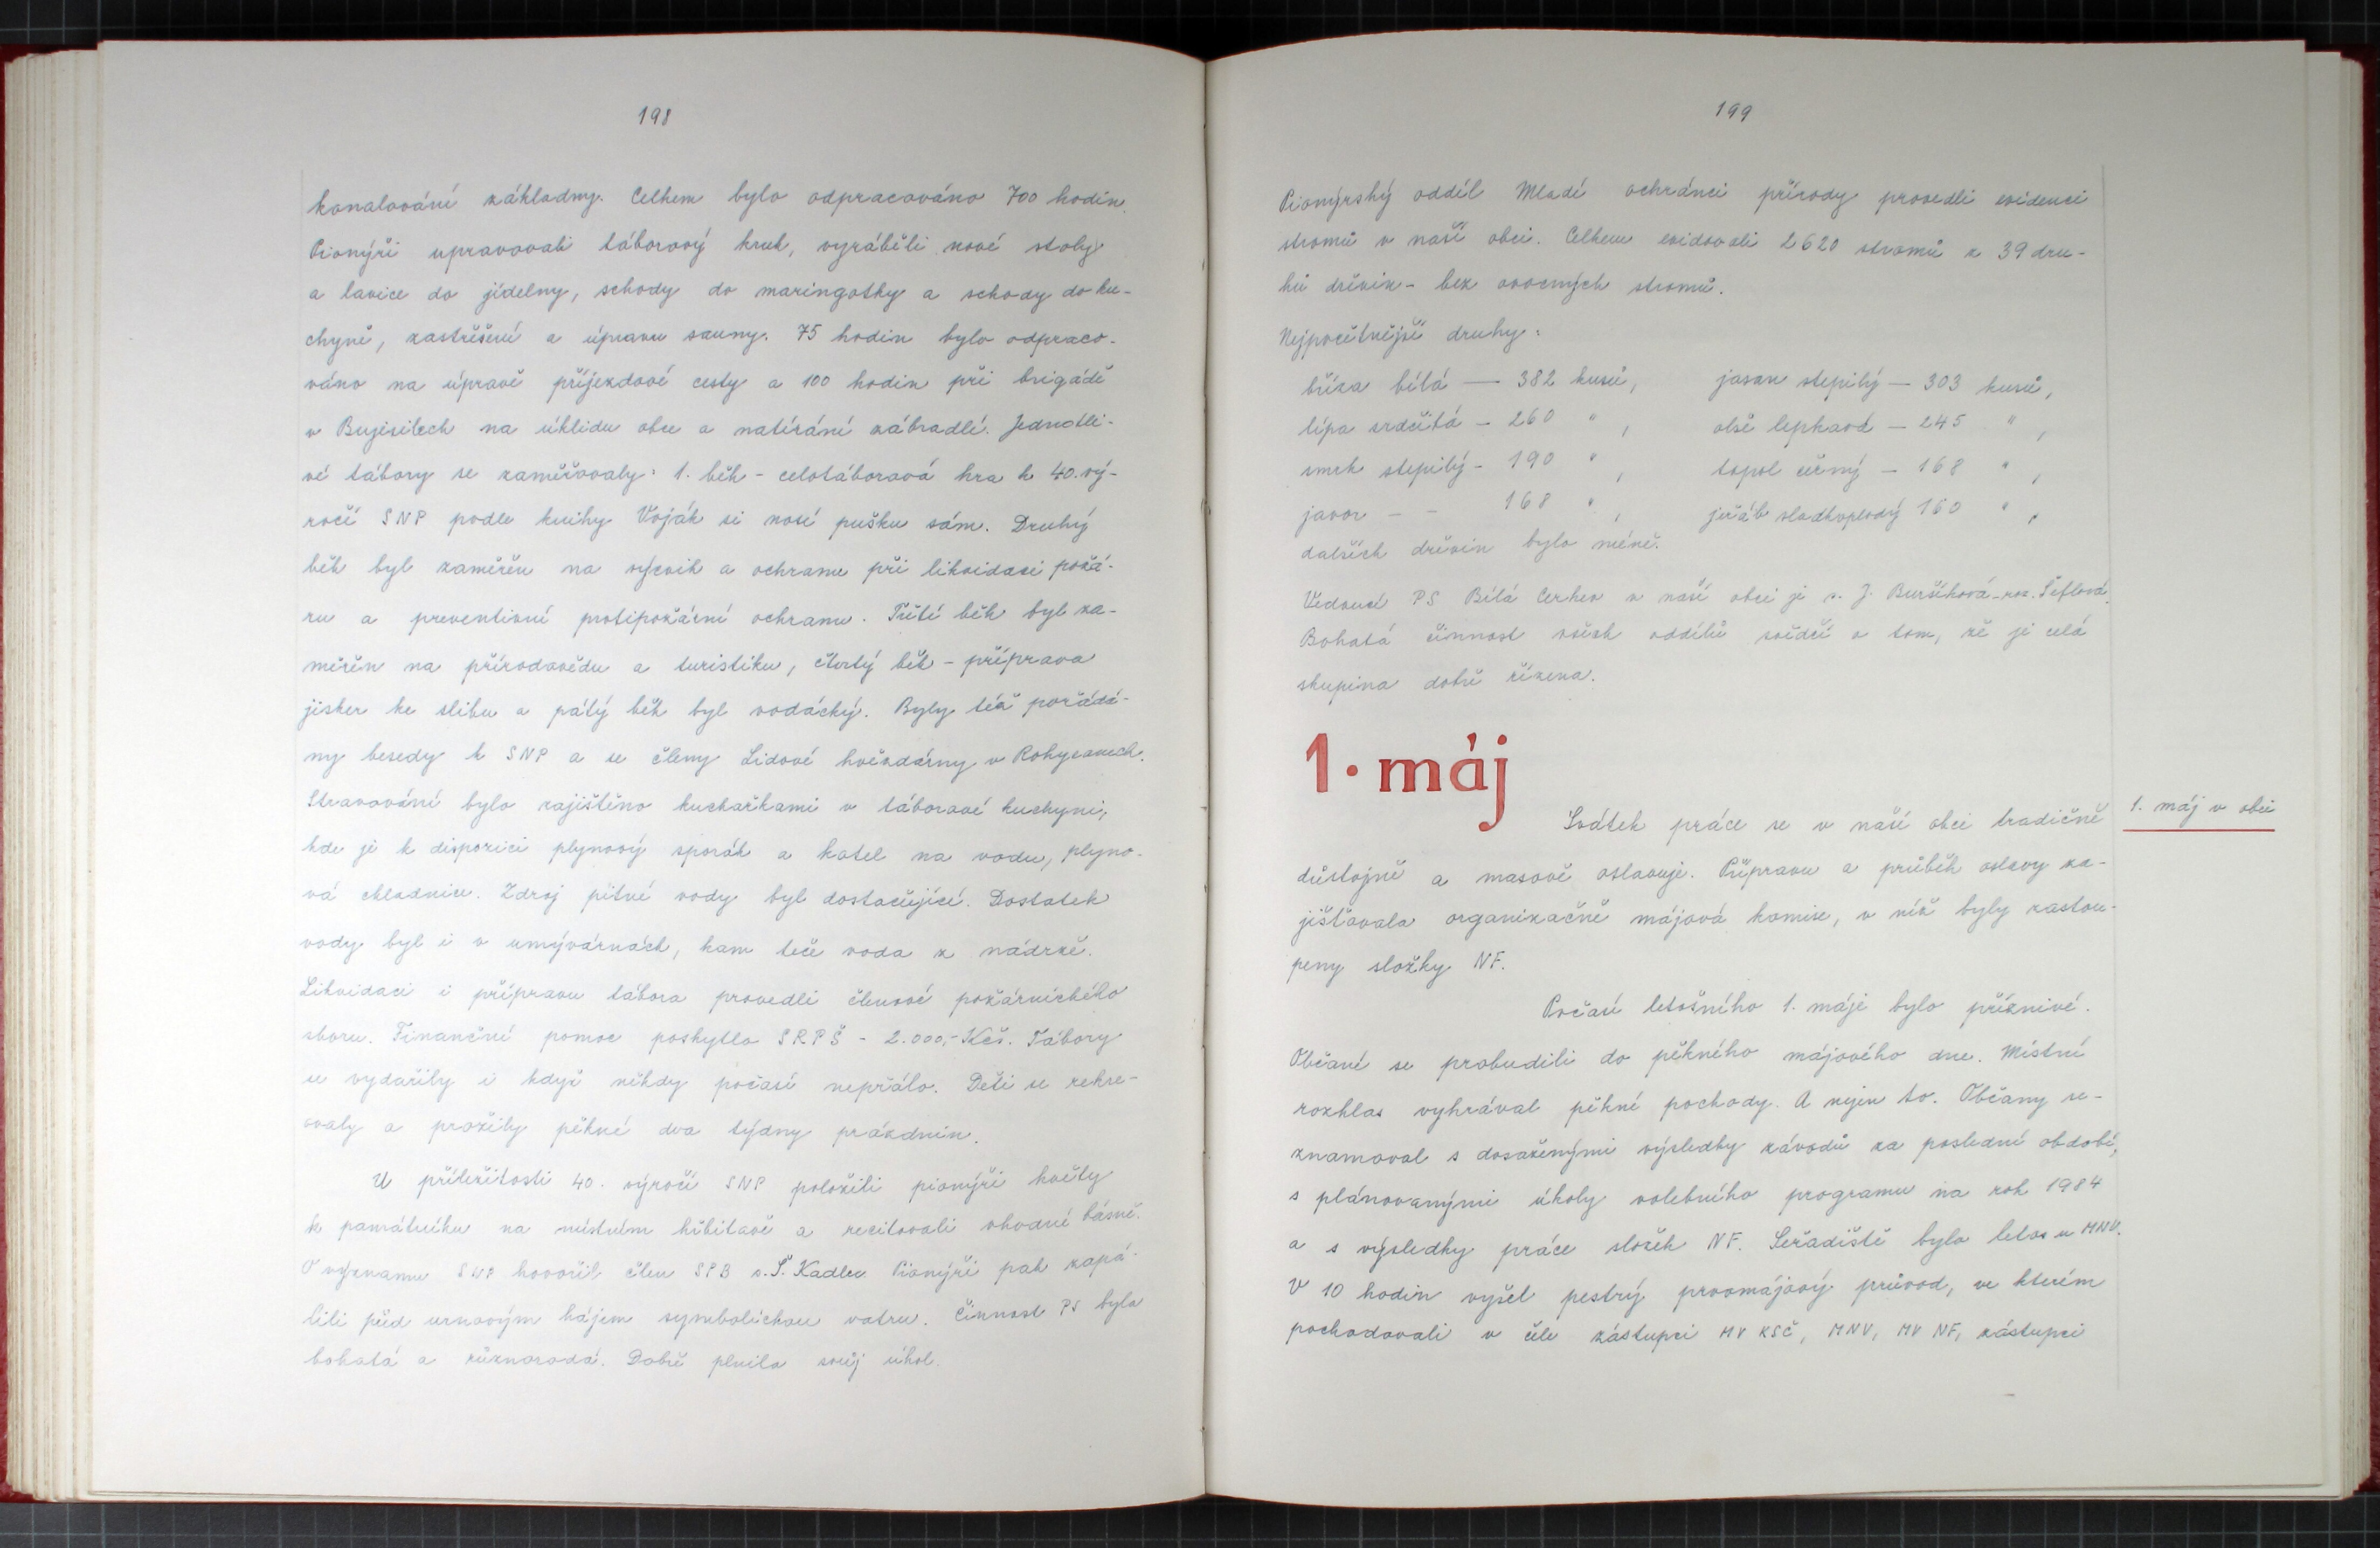 198
konalování základny. Celkem bylo odpracováno 700 hodin.
Pionýři upravovali táborový kruh, vyráběli nové stoly
a lavice do jídelny, schody do maringotky a schody do ku-
chyně, zastřešení a úpravu sauny. 75 hodin bylo odpraco-
váno na úpravě příjezdové cesty a 100 hodin při brigádě
v Bujesilech na úklidu obce a natírání zábradlí. Jednotli-
vé tábory se zaměřovaly: 1. běh - celotáborová hra k 40. vý-
ročí SNP podle knihy Voják si nosí pušku sám. Druhý
běh byl zaměřen na výcvik a ochranu při likvidaci požá-
ru a preventivní protipožární ochranu. Třetí běh byl za-
měřen na přírodovědu a turistiku, čtvrtý běh - příprava
jisker ke slibu a pátý běh byl vodácký. Byly též pořádá-
ny besedy k SNP a se členy Lidové hvězdárny v Rokycanech.
Stravování bylo zajištěno kuchařkami v táborové kuchyni,
kde je k dispozici plynový sporák a kotel na vodu, plyno-
vá chladnice. Zdroj pitné vody byl dostačující. Dostatek
vody byl i v umývárnách, kam teče voda z nádrže.
Likvidaci i přípravu tábora provedli členové požárnického
sboru. Finanční pomoc poskytlo SRPŠ - 2.000,- Kčs. Tábory
se vydařily i když někdy počasí nepřálo. Děti se rekre-
ovaly a prožily pěkné dva týdny prázdnin.
U příležitosti 40. výročí SNP položili pionýři květy
k památníku na místním hřbitově a recitovali vhodné básně.
O významu SNP hovořil člen SPB s. Š. Kadlec. Pionýři pak zapá-
lili před urnovým hájem symbolickou vatru. Činnost PS byla
bohatá a různorodá. Dobře plnila svůj úkol.
199
Pionýrský oddíl Mladí ochránci přírody provedli evidenci
stromů v naší obci. Celkem evidovali 2620 stromů z 39 dru-
hů dřevin - bez ovocných stromů.
Nejpočetnější druhy:
bříza bílá — 382 kusů, jasan ztepilý — 303 kusů,
lípa srdčitá - 260 " , olše lepkavá - 245 " ,
smrk ztepilý - 190 " , topol černý - 168 " ,
javor - - 168 " , jeřáb sladkoplodý 160 " ,
dalších dřevin bylo méně.
Vedoucí PS Bílá Cerkev v naší obci je s. J. Buršíková-roz. Šeflová.
Bohatá činnost všech oddílů svědčí o tom, že je celá
skupina dobře řízena.
1. máj
1. máj v obci
Svátek práce se v naší obci tradičně
důstojně a masově oslavuje. Přípravu a průběh oslavy za-
jišťovala organizačně májová komise, v níž byly zastou-
peny složky NF.
Počasí letošního 1. máje bylo příznivé.
Občané se probudili do pěkného májového dne. Místní
rozhlas vyhrával pěkné pochody. A nejen to. Občany se-
znamoval s dosaženými výsledky závodů za poslední období,
s plánovanými úkoly volebního programu na rok 1984
a s výsledky práce složek NF. Seřadiště bylo letos u MNV.
V 10 hodin vyšel pestrý prvomájový průvod, ve kterém
pochodovali v čele zástupci MV KSČ, MNV, MV NF, zástupci